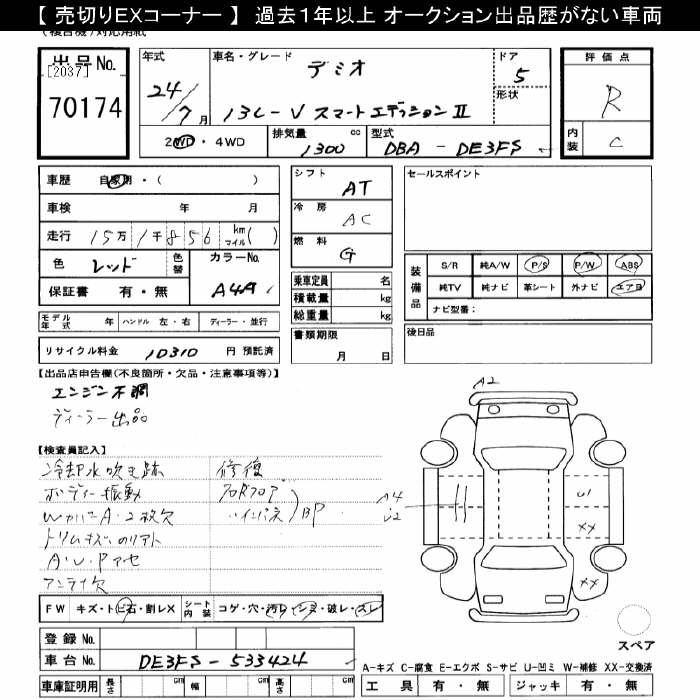 【 売切りEXコーナー 】 過去１年以上 オークション出品歴がない車両
出品No.
[2037]
70174
年式
24/7月
車名・グレード
デミオ
13C-V スマートエディションⅡ
ドア
5
形状
評価点
R
内装
C
2WD・4WD
排気量 1300 cc
型式 DBA - DE3FS
車歴 自家用・( )
車検 年 月
走行 15万1千856 km マイル( )
色 レッド 色替
カラーNo. A4A
保証書 有・無
モデル年式 年 ハンドル 左・右 ディーラー・並行
リサイクル料金 10310 円 預託済
シフト AT
冷房 AC
燃料 G
乗車定員 名
積載量 kg
総重量 kg
書類期限
月 日
セールスポイント
装備品
S/R 純A/W P/S P/W ABS
純TV 純ナビ 革シート 外ナビ エアB
ナビ型番:
後日品
【出品店申告欄(不良箇所・欠品・注意事項等)】
エンジン不調
ディーラー出品
【検査員記入】
冷却水吹き跡
ボディー振動
WカバーA・2枚欠
トリムキズ
A・U・Pアセ
アンテナ欠
修復
BP
A2
A4
U2
U1
XX
XX
FW キズ・トビ石・割レX
シート内装 コゲ・穴・汚レ・シミ・破レ・スレ
登録No.
車台No. DE3FS-533424
車庫証明用 長さ cm 幅 cm 高さ cm
スペア
A-キズ C-腐食 E-エクボ S-サビ U-凹ミ W-補修 XX-交換済
工具 有・無 ジャッキ 有・無